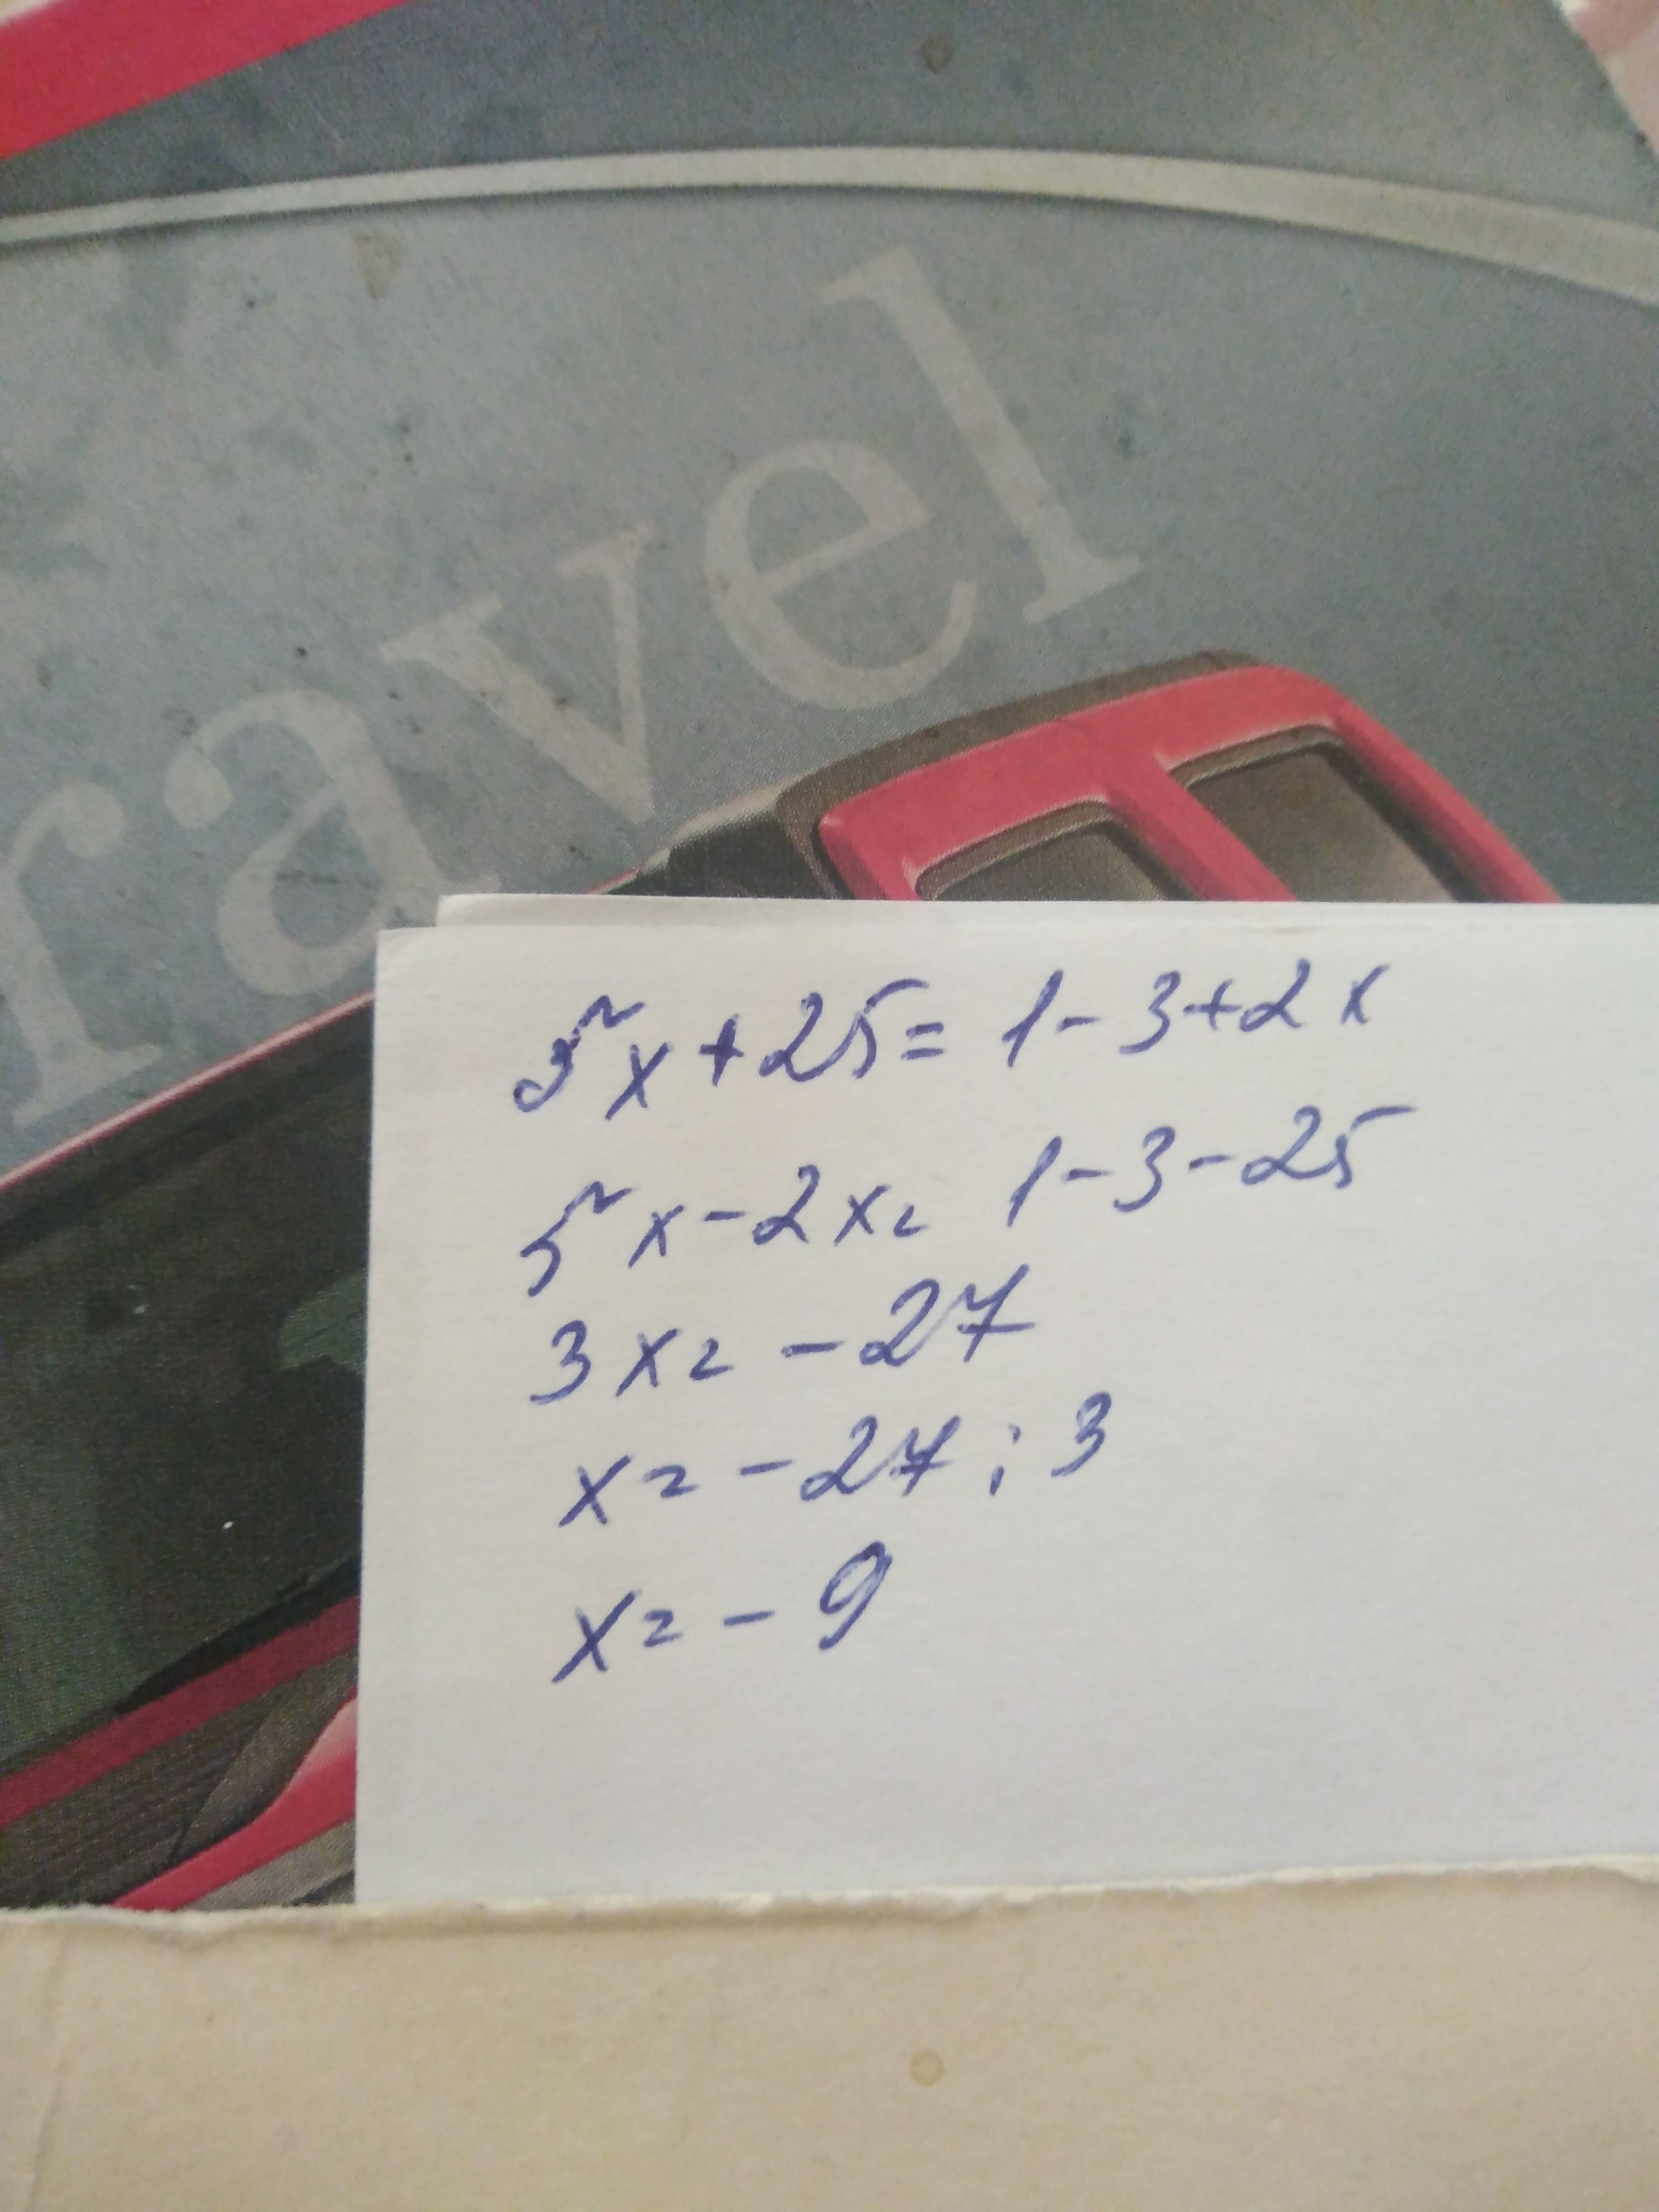 ravel
5x+25=1-3+2x
5x-2x=1-3-25
3x=-27
x=-27:3
x=-9